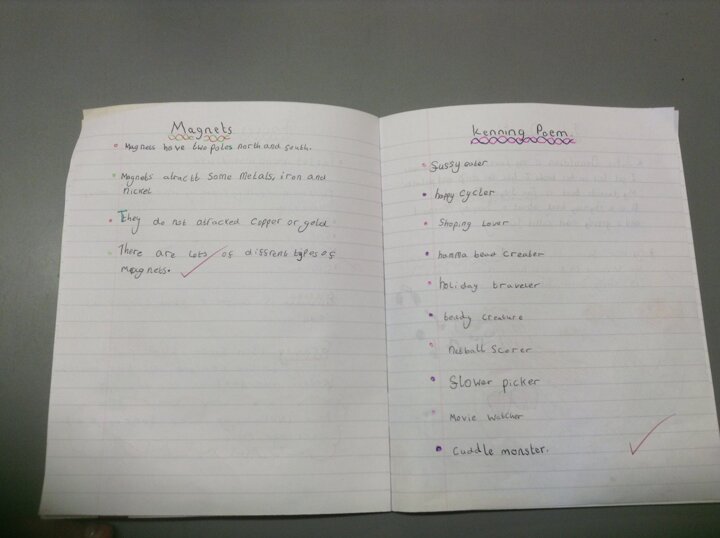 Magnets
Magnets have two poles north and south.
Magnets atractt some metals, iron and
nickel
They do not attacked copper or gold
There are lots of different types of
Magnets.
Kenning Poem.
Sussy eater
happy cycler
Shoping Lover
hamma bead creater
holiday traveler
beady creature
Netball Scorer
Slower picker
Movie watcher
Cuddle monster.